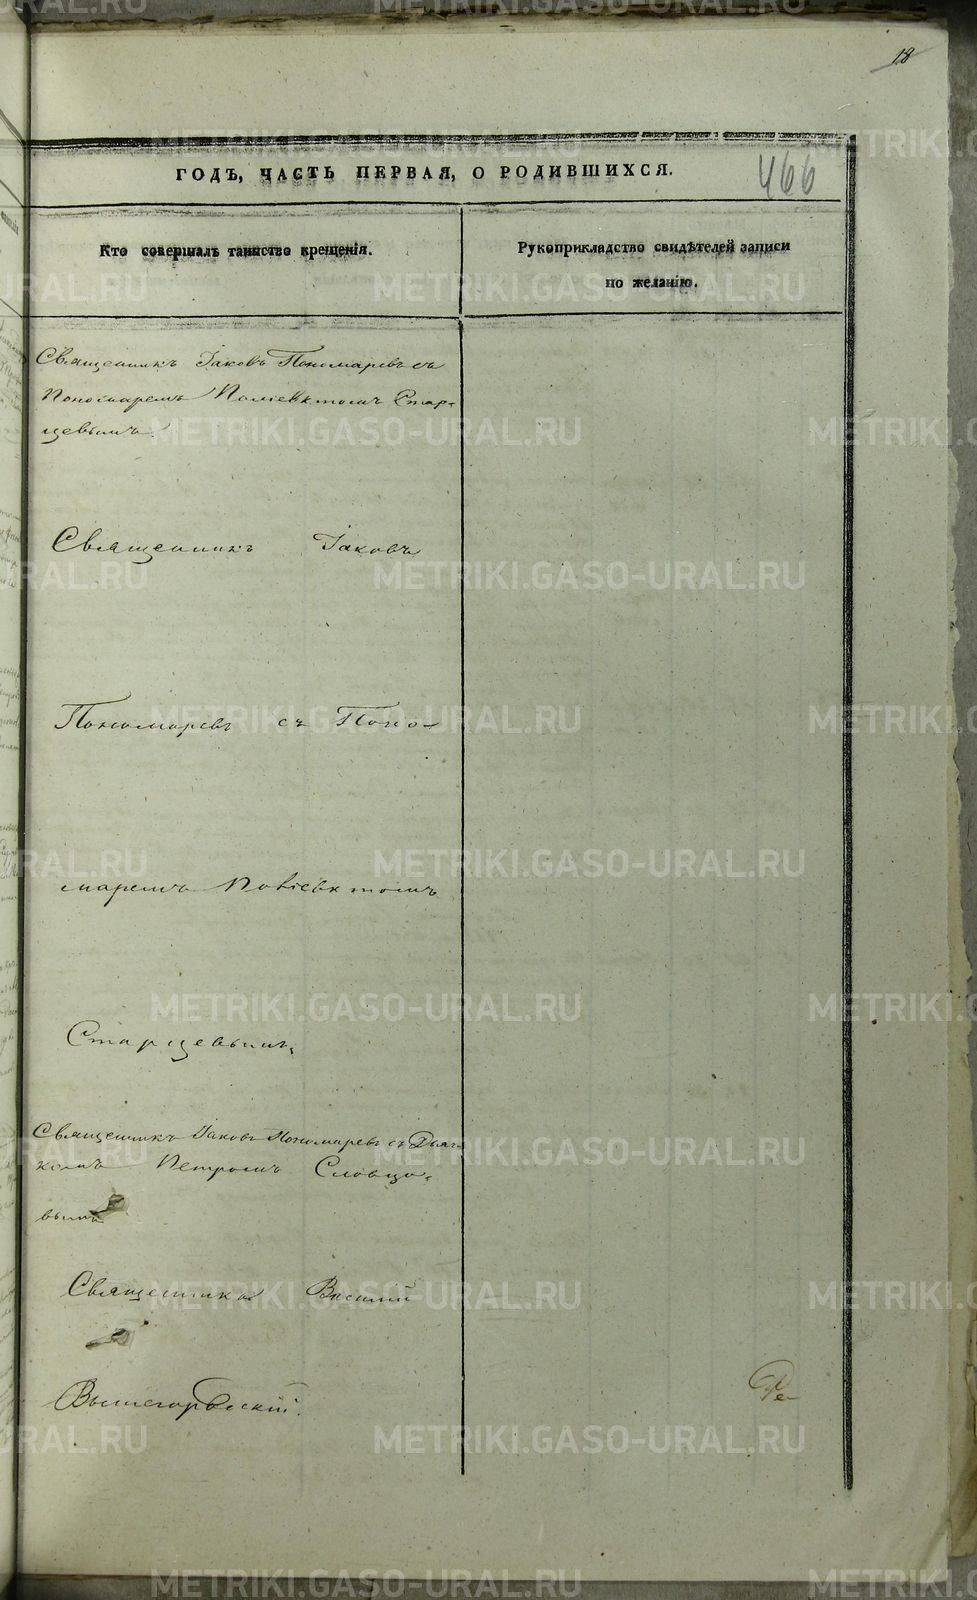 18
ГОДЪ, ЧАСТЬ ПЕРВАЯ, О РОДИВШИХСЯ.
466
Кто совершалъ таинство крещенія.
Рукоприкладство свидѣтелей записи
по желанію.
Священникъ Іаковъ Пономаревъ съ
Пономаремъ Поліевктомъ Стар-
цевымъ.
Священникъ Іаковъ
Пономаревъ съ Поно-
маремъ Поліевктомъ
Старцевымъ,
Священникъ Іаковъ Пономаревъ съ Дьяч-
комъ Петромъ Словцо-
вымъ
Священникъ Василій
Вышегородскій.
METRIKI.GASO-URAL.RU